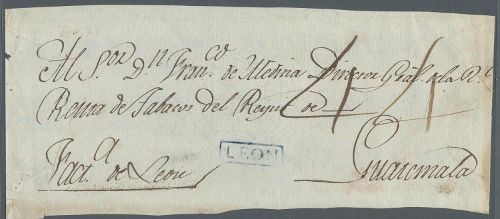 Al S.or D.n Fran.co de Medina Director Gral. de la R.l
Renta de Tabacos del Reyno de
Guatemala
Fact.a de Leon
LEON